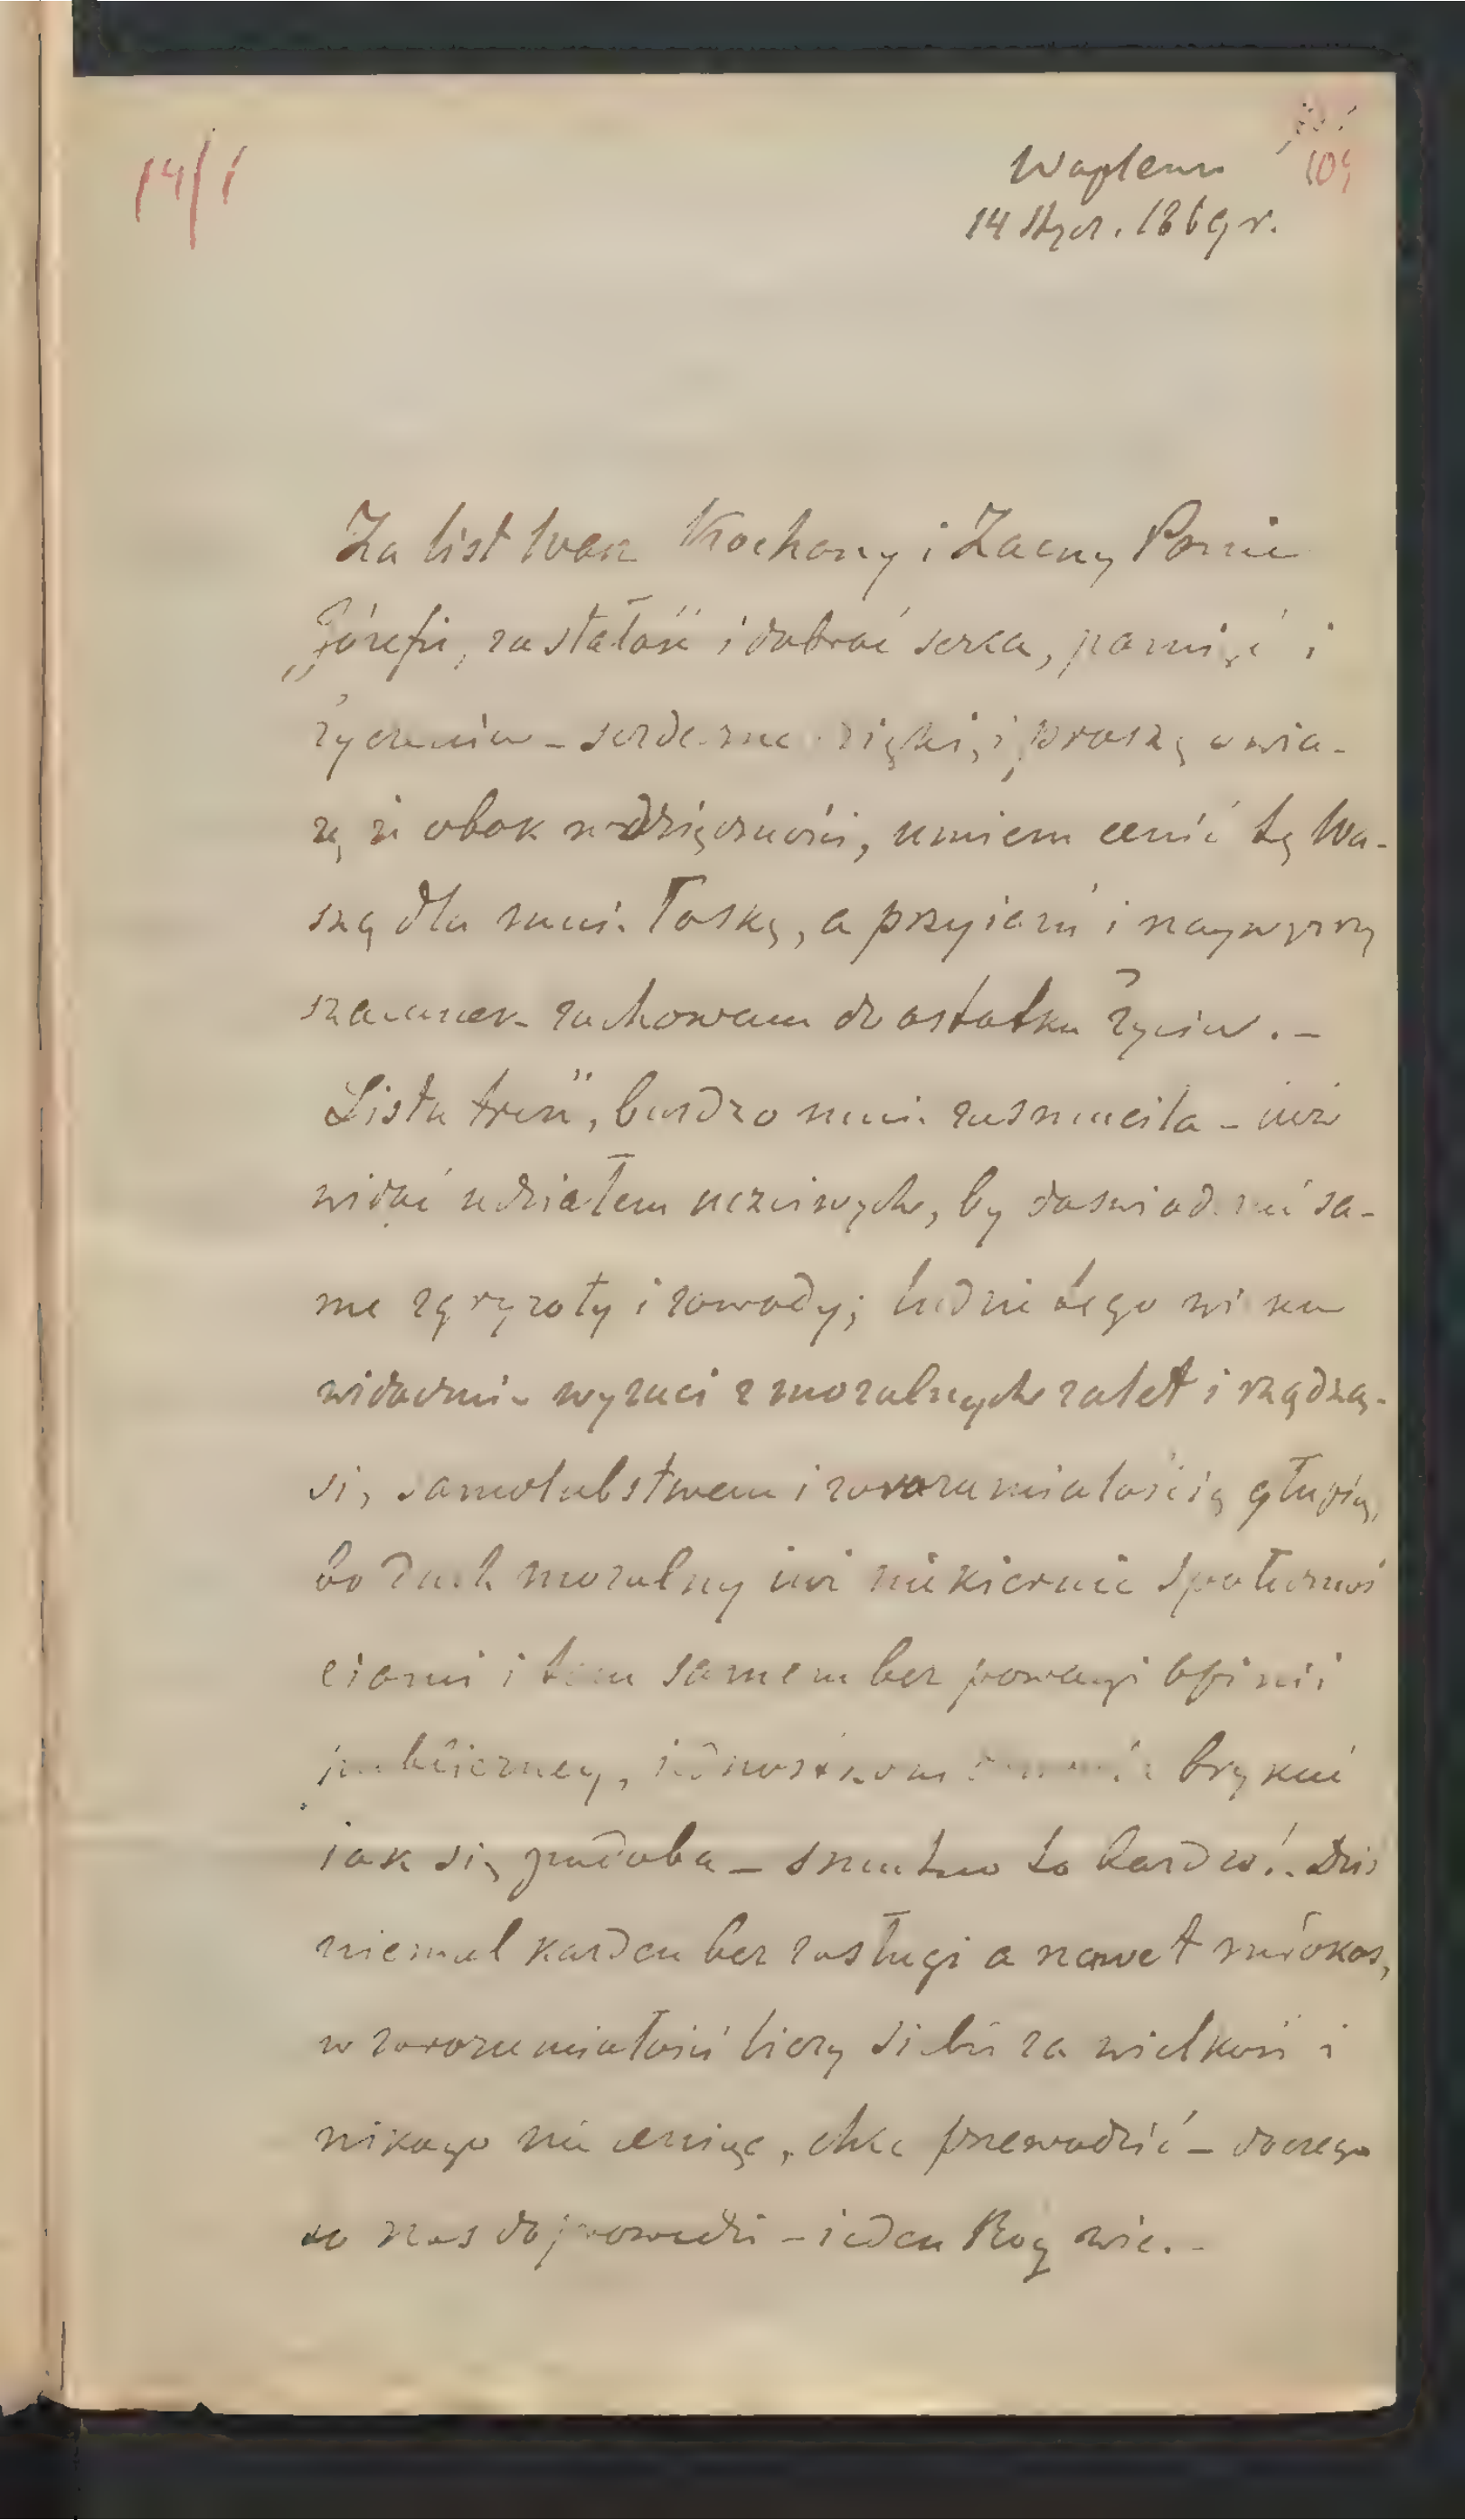 14/1
109
Waplewo
14 Stycz. 1869 r.
Za list Wasz Kochany i Zacny Panie
Józefie, za stałość i dobroć serca, pamięć i
życzenia – serdeczne dzięki, i proszę o wia-
rę że obok wdzięczności, umiem cenić tę Wa-
szą dla mnie łaskę, a przyiaźń i naywyższy
szacunek zachowam do ostatku życia. –
Listu treść, bardzo mnie zasmuciła – iuż
widać udziałem uczciwych, by doświadczać sa-
me zgryzoty i zawody; ludzie tego wieku
widocznie wyzuci z moralnych zalet i rządzą
się samolubstwem i zarozumiałością głupią,
bo duch moralny iuż nie kieruie społecznoś
ciami i tem samem bez powagi opinii
publiczney, iednostkom brykać
iak się podoba – smutno to bardzo!. Dziś
niemal każden bez zasługi a nawet smiokos,
w zarozumiałości bierzy siebie za wielkość i
nikogo nie ceniąc, chce przewodzić – do czego
to nas doprowadzi – ieden Bóg wie. –